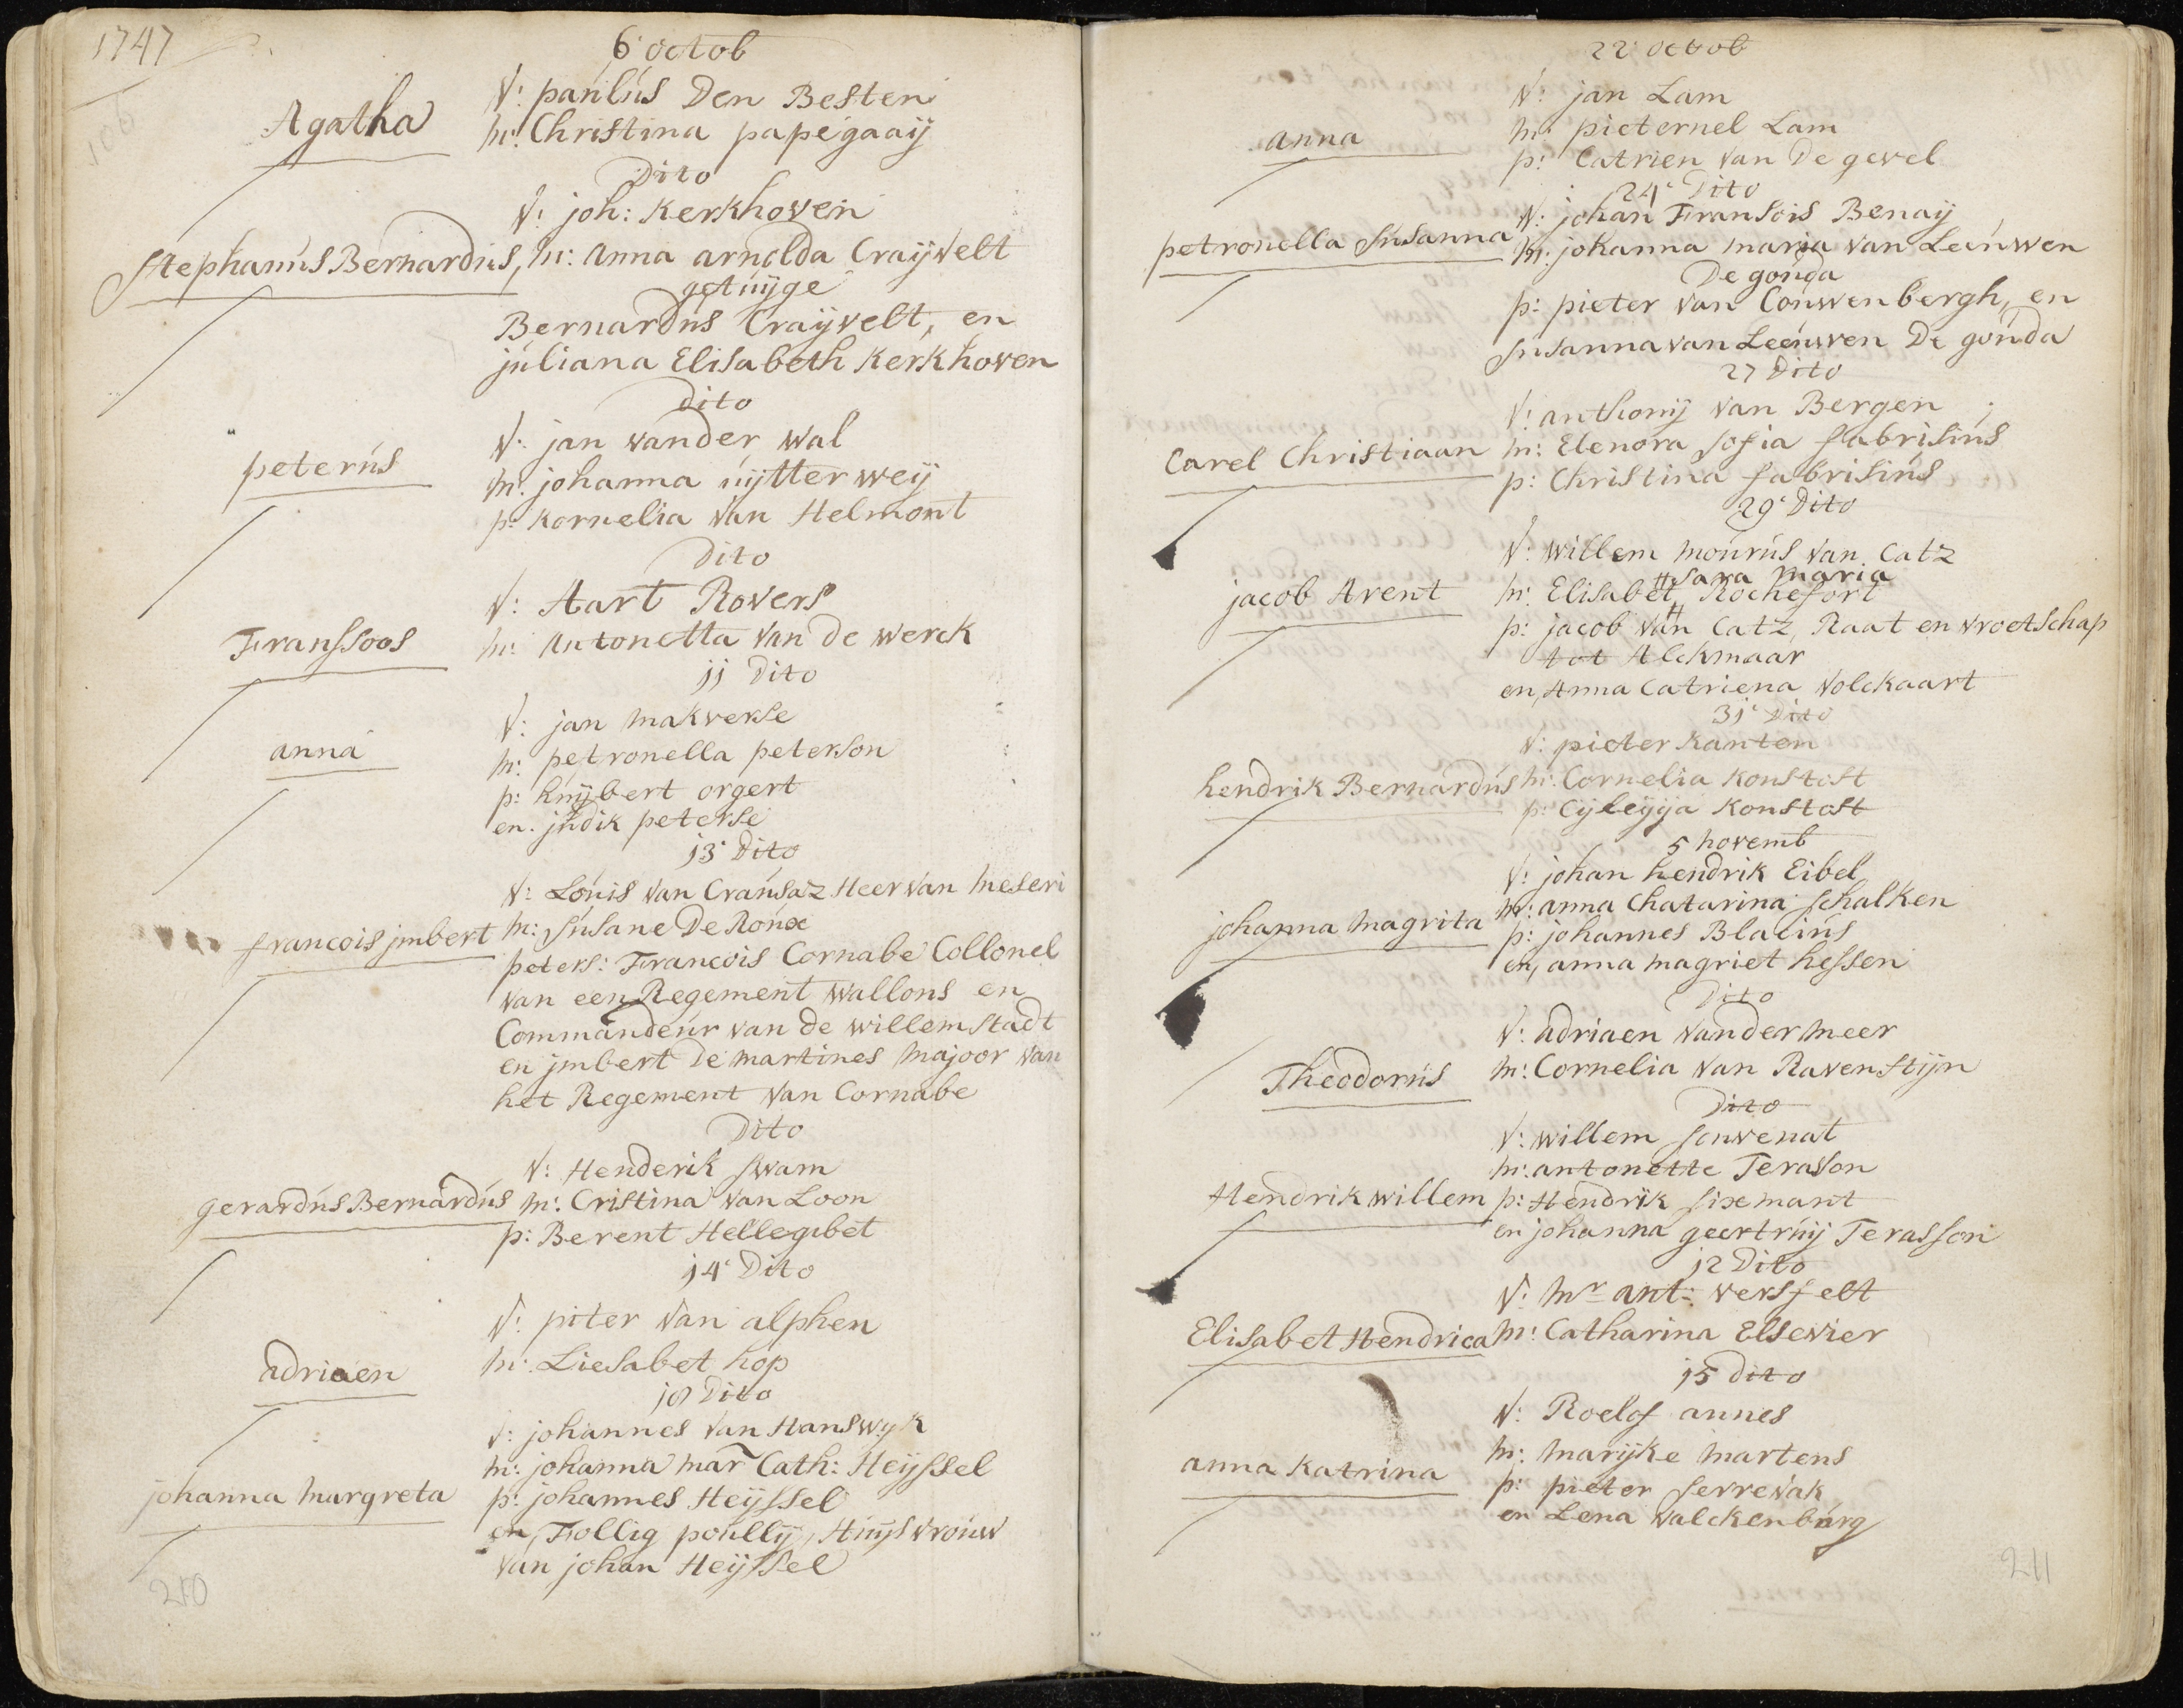 1747
106
6: octob
V: paulus Den Besten
Agatha
m: Christina papegaaij
Dito
V: joh: Kerkhoven
Stephanus Bernardus, m: Anna arnolda Craijvelt
getuijge
Bernardus Craijvelt, en
juliana Elisabeth Kerkhoven
dito
V: jan vander wal
peterus
m: johanna uijtter weij
p: Kornelia van Helmont
dito
V: Aart Rovers
Franssoos
m: Antonetta van de werck
11 Dito
V: jan makverse
anna
m: petronella peterson
p: huijbert orgert
en. judik peterse
13: Dito
V: Louis van Crausaz Heer van meseri
francois jmbert m: Susane De Roux
peters: Francois Cornabe Collonel
van een Regement wallons en
Commandeur van de willemstadt
en jmbert De martines majoor van
het Regement van Cornabe
Dito
V: Henderik swam
gerardus Bernardus m: Cristina van Loon
p: Berent Hellegibet
14: Dito
V: piter van alphen
adriaen
m: Liesabet hop
18 Dito
V: johannes van Hanswyk
m: johanna mar Cath: Heijssel
johanna margreta
p: johannes Heijssel
en, Follig poullij, Huijsvrouw
van johan Heijssel
210
22: octob
V: jan Lam
anna
m: pieternel Lam
p: Catrien van De gevel
24: Dito
V: johan Fransois Benaij
petronella Susanna m: johanna maria van Leeuwen
De gouda
p: pieter van Couwenbergh, en
Susanna van Leeuwen De gouda
27 Dito
V: anthonij van Bergen
Carel Christiaan m: Elenora sofia fabrisius
p: Christina fabrisius
29: Dito
V: willem mourus van Catz
# Sara maria
jacob Arent
m: Elisabet # Rochefort
p: jacob van Catz, Raat en vroetschap
tot Alckmaar
en, Anna Catriena Volckaart
31: Dito
V: pieter Kanten
hendrik Bernardus m: Cornelia Konstost
p: Cijleyja Konstost
5 novemb
V: johan hendrik Eibel
johanna magrita m: anna Chatarina schalken
p: johannes Blalius
en, anna magriet hessen
Dito
V: adriaen vander meer
Theodorus
m: Cornelia van Ravenstijn
Dito
V: willem souvenat
m: antonette Terasson
Hendrik willem p: Hendrik sixemant
en johanna geertruij Terasson
12 Dito
V: Mr ant: versfelt
Elisabet Hendrica m: Catharina Elsevier
15 dito
V: Roelof annes
anna Katrina
m: marijke martens
p: pieter serrevak
en Lena valckenburg
211